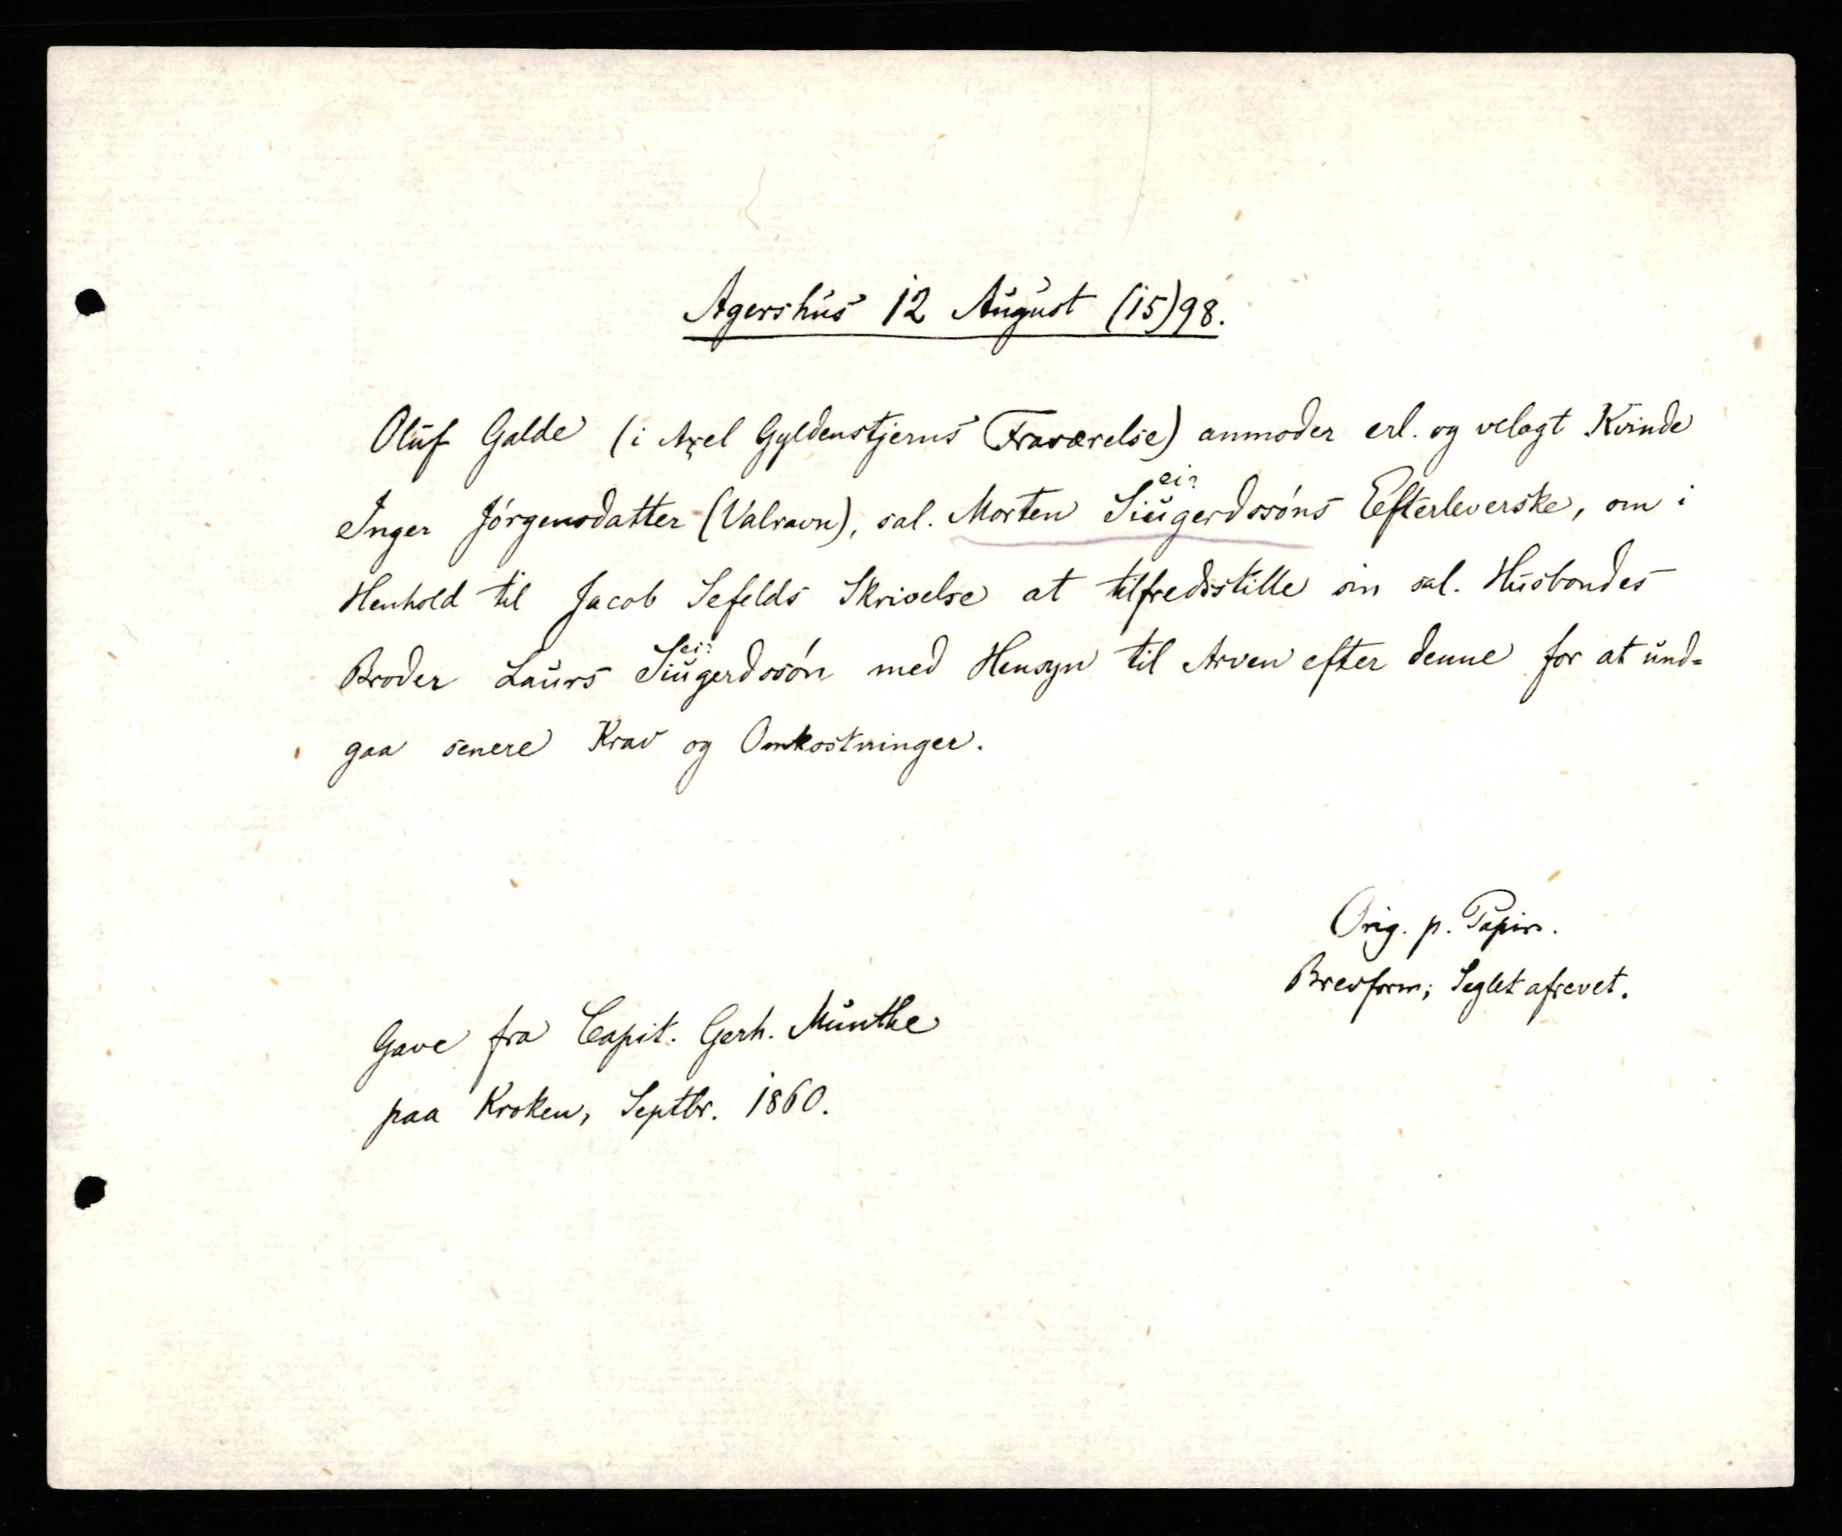 Agershus 12 August (15)98.
Oluf Galde (i Axel Gyldenstjerns Fraværelse) anmoder erl. og velagt Kvinde
ei?
Inger Jörgensdatter (Valravn), sal. Morten Siugerdssöns Efterleverske, om i
Henhold til Jacob Sefelds Skrivelse at tilfredsstille sin sal. Husbondes
ei?
Broder Laurs Siugerdssön med Hensyn til Arven efter denne for at und=
gaa senere Krav og Omkostninger.
Orig. p. Papir.
Brevform; Seglet afrevet.
Gave fra Capit. Gerh. Munthe
paa Kroken, Septbr. 1860.